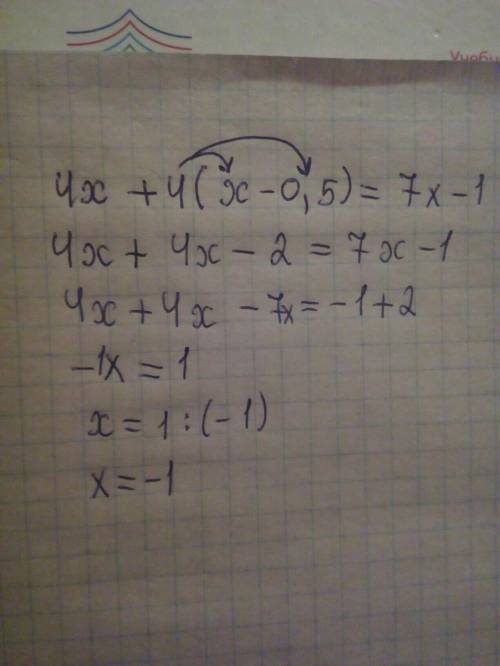 Учебн
4x + 4(x - 0,5) = 7x - 1
4x + 4x - 2 = 7x - 1
4x + 4x - 7x = -1 + 2
-1x = 1
x = 1 : (-1)
x = -1